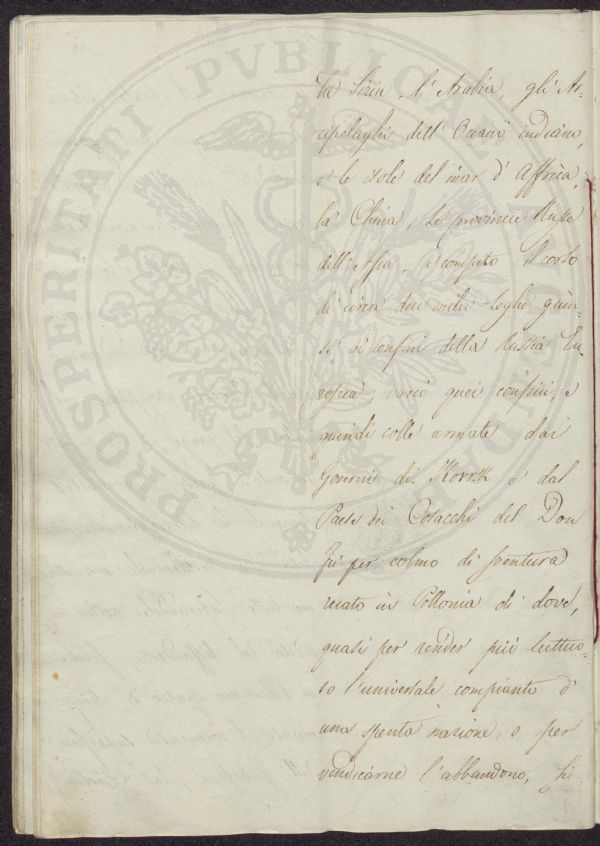 la Siria, l'Arabia, gli Ar-
cipelaghi dell'Oceano indiano,
e le isole del mar d'Affrica,
la China, le provincie Russe
dell'Asia, e compito il corso
di circa due mila leghe giun-
se ai confini della Russia Eu-
ropea, varcò quei confini, e
quindi colle armate dai
Governi di Korsk e dal
Paese dei Cosacchi del Don
fu per colmo di sventura
recato in Pollonia di dove,
quasi per render più luttuo-
so l'universale compianto d'
una spenta nazione, o per
vendicarne l'abbandono, si
PROSPERITATI PVBLICAE